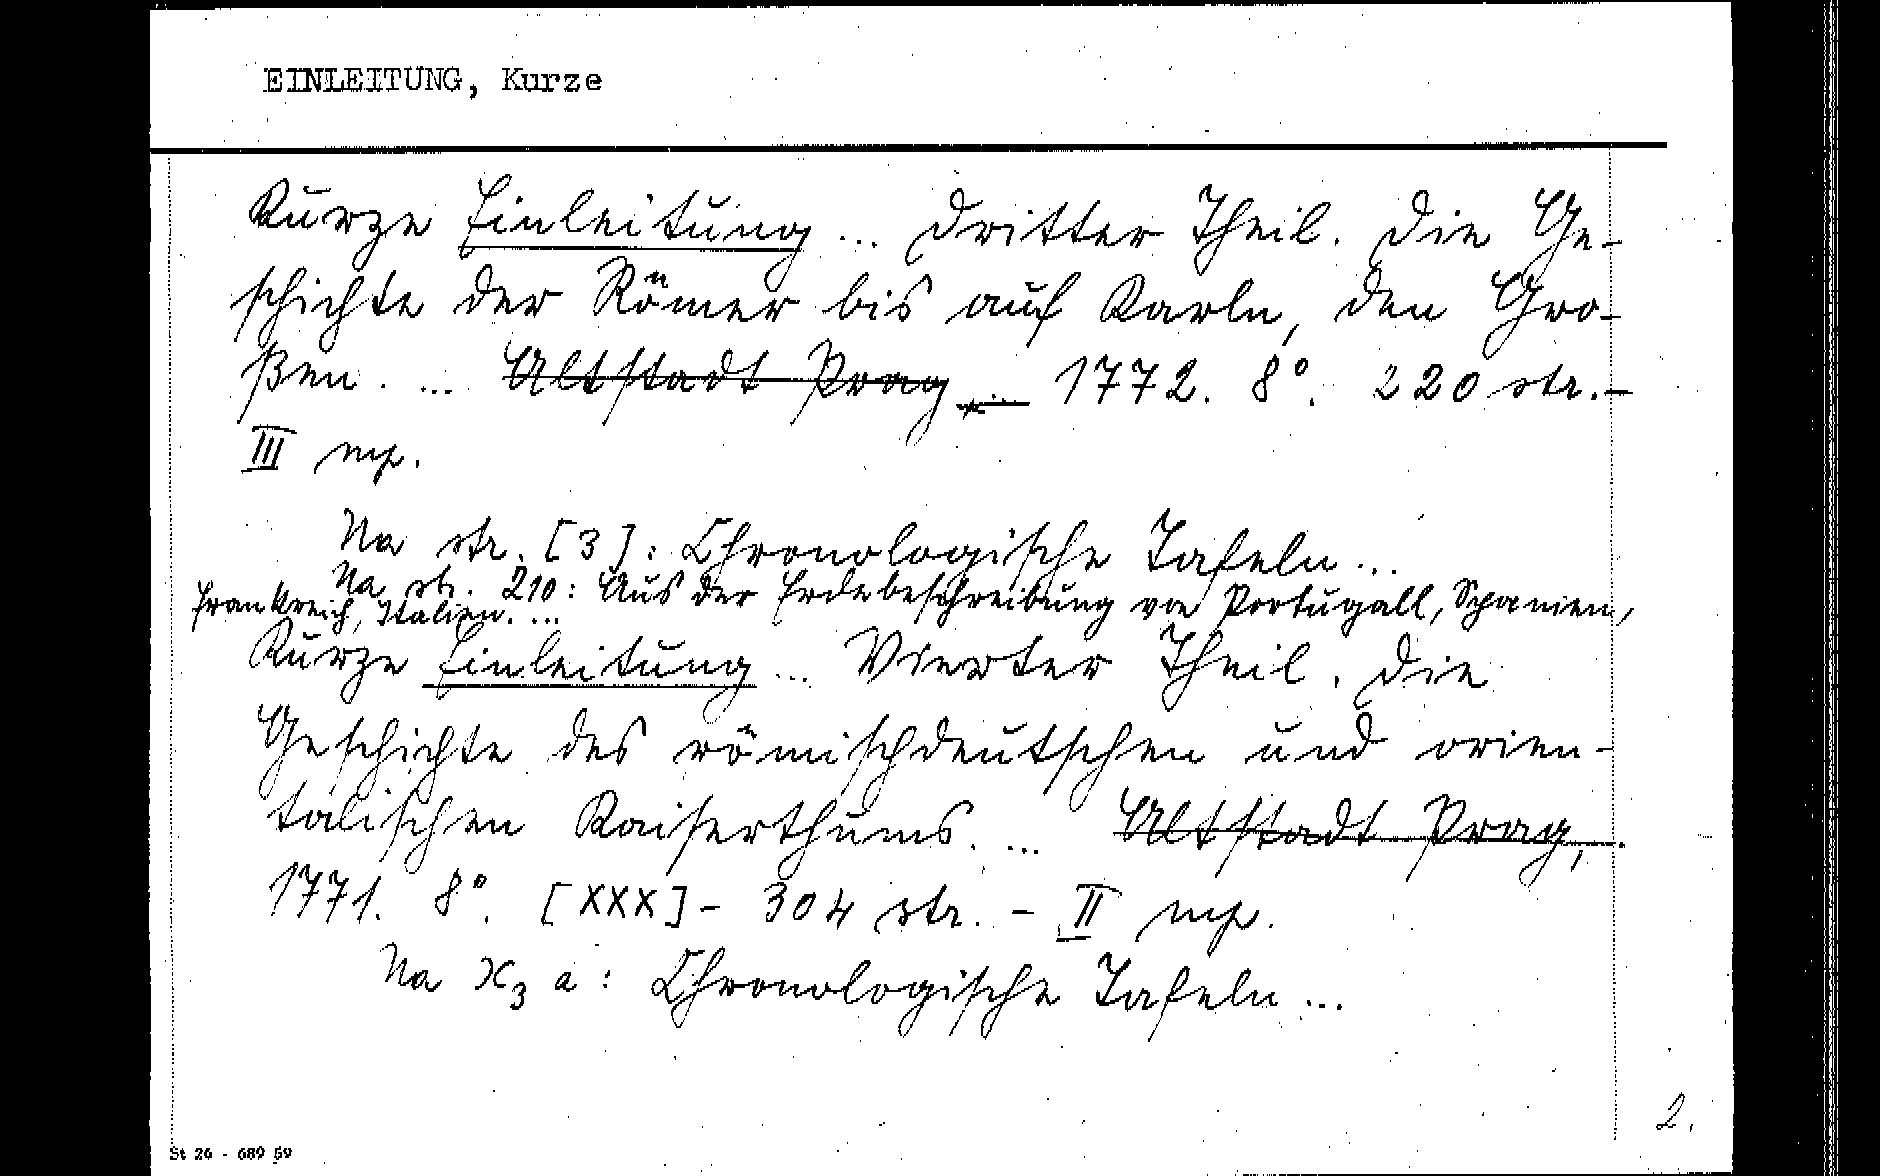 EINLEITUNG, Kurze
Kurze Einleitung ... Dritter Theil. Die Ge-
schichte der Römer bis auf Karln, den Gro-
ßen. ... Altstadt Prag ... 1772. 8°. 220 str. -
III mp.
Na str. [3]: Chronologische Tafeln ...
Na str. 210: Aus der Erdebeschreibung von Portugall, Spanien,
Frankreich, Italien. ...
Kurze Einleitung ... Vierter Theil. Die
Geschichte des römischdeutschen und orien-
talischen Kaiserthums. ... Altstadt Prag, .
1771. 8°. [XXX] - 304 str. - II mp.
Na X3 a: Chronologische Tafeln ...
2.
St 26 - 689 59